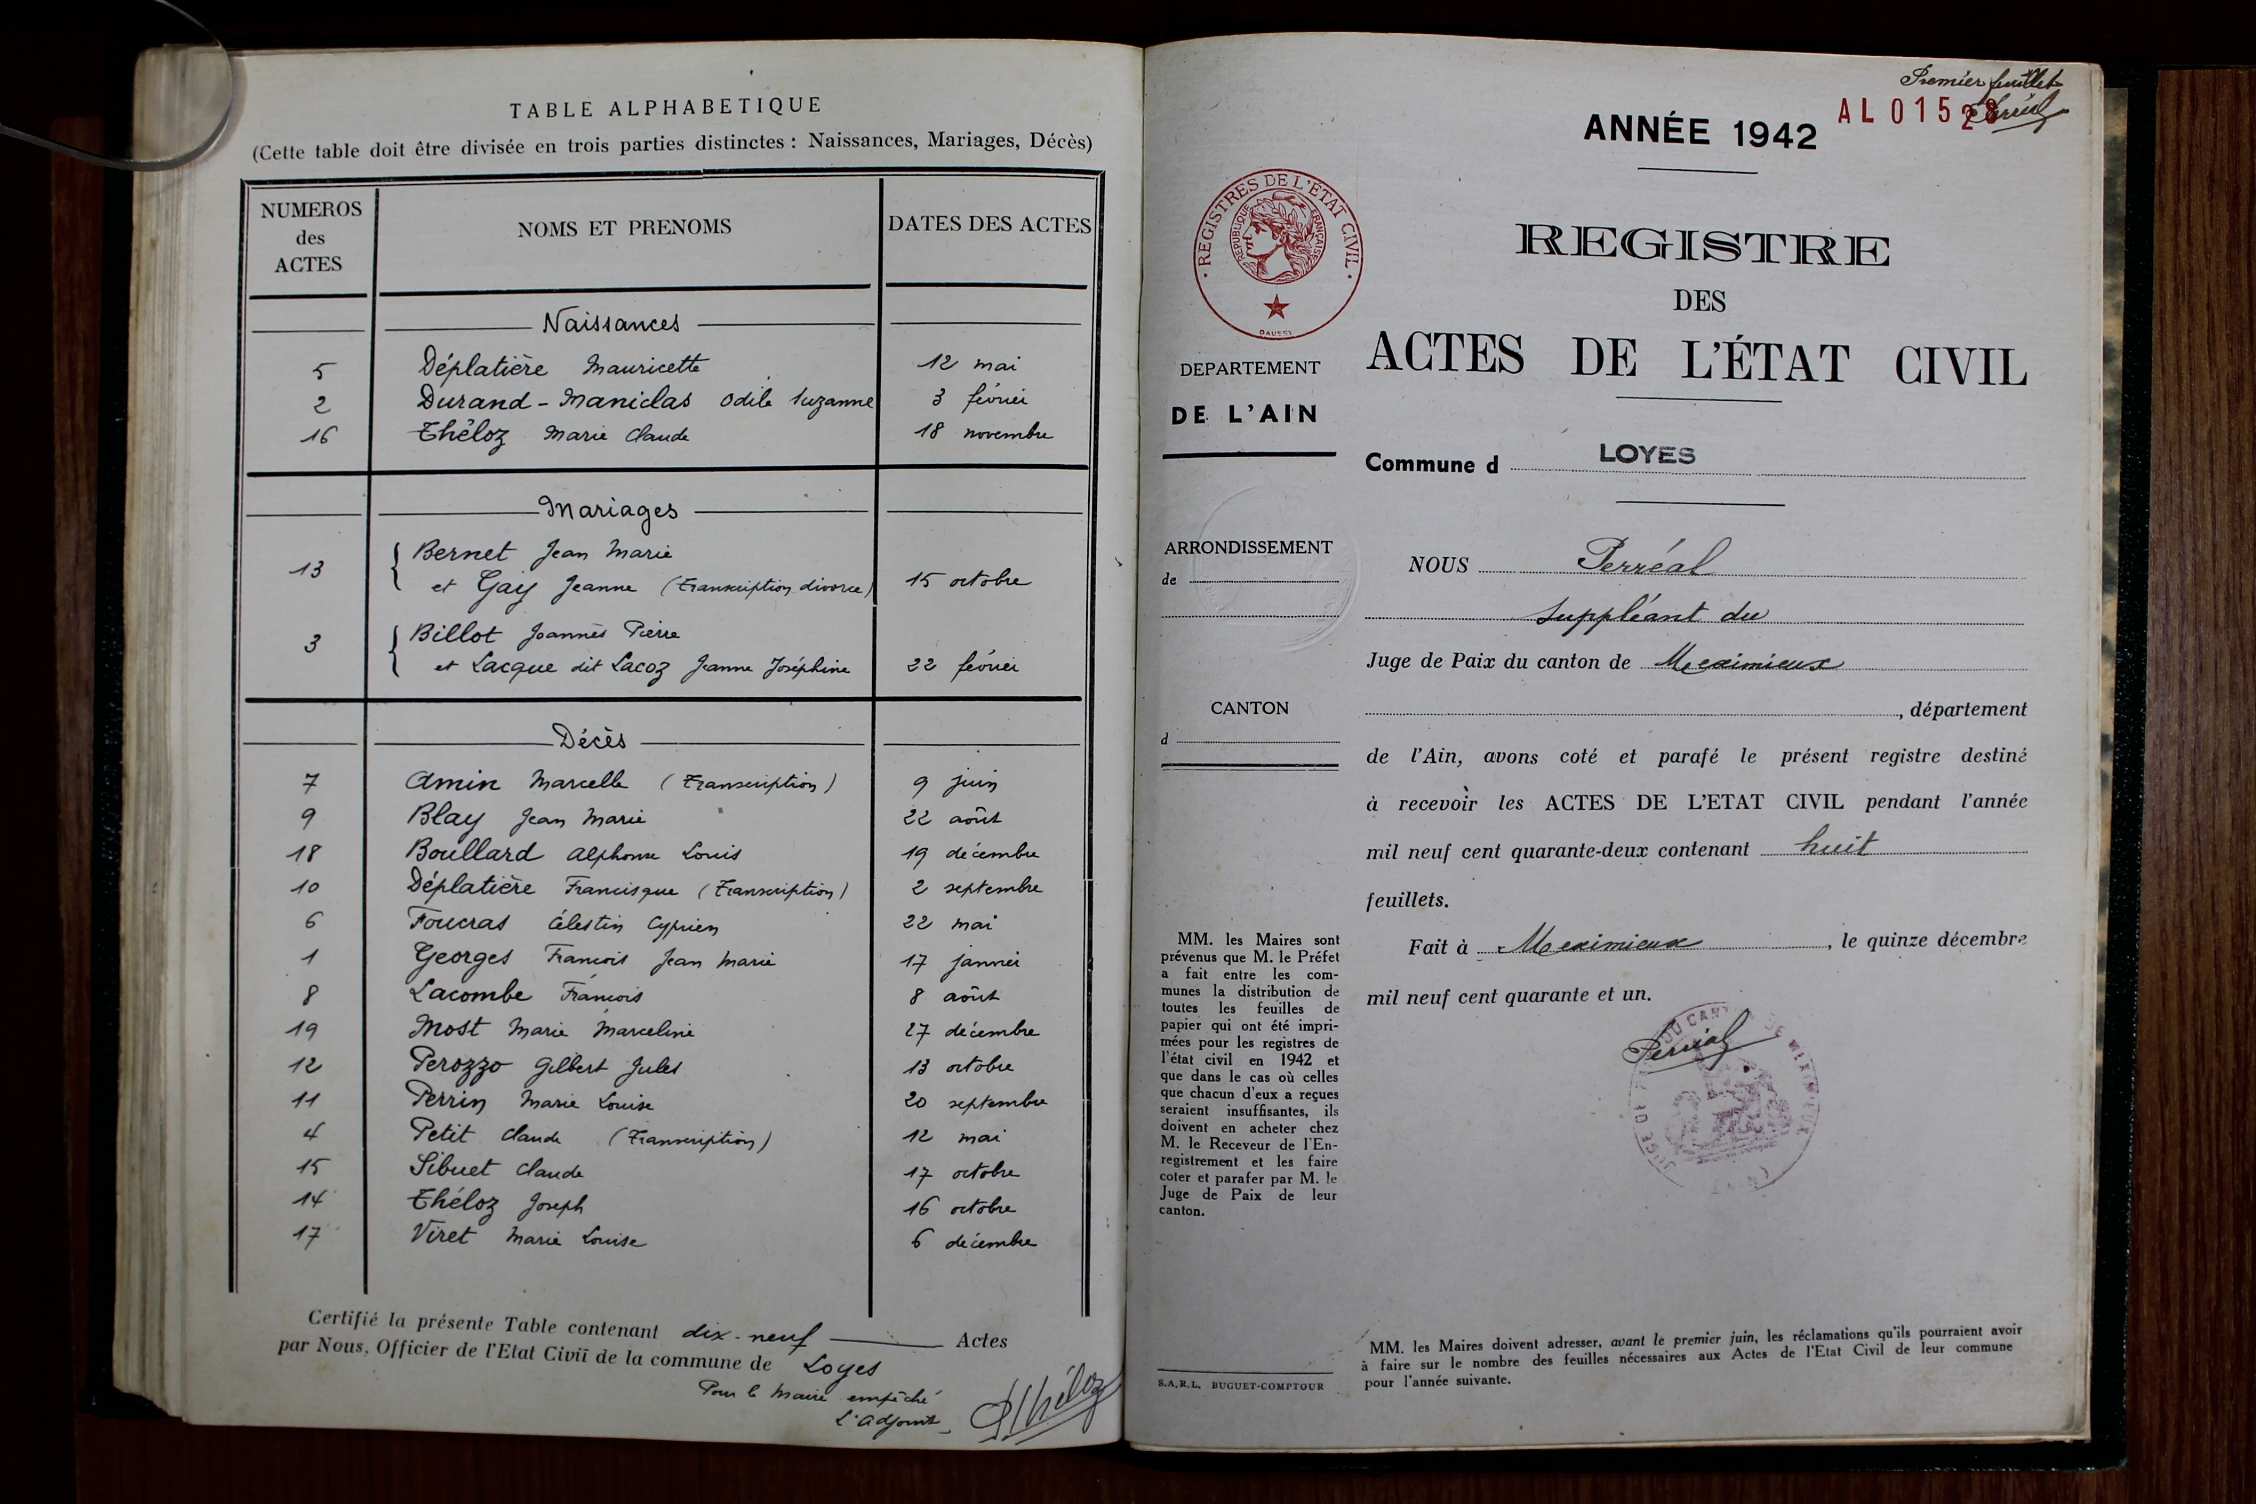 TABLE ALPHABETIQUE
(Cette table doit être divisée en trois parties distinctes : Naissances, Mariages, Décès)
NUMEROS des ACTES NOMS ET PRENOMS DATES DES ACTES
Naissances
5 Déplatière Mauricette 12 mai
2 Durand - Maniclas Odile Suzanne 3 février
16 Théloz Marie Claude 18 novembre
Mariages
13 { Bernet Jean Marie
et Gay Jeanne (Transcription divorce) 15 octobre
3 { Billot Joannès Pierre
et Lacque dit Lacoz Jeanne Joséphine 22 février
Décès
7 Amin Marcelle (Transcription) 9 juin
9 Blay Jean Marie 22 août
18 Boullard Alphonse Louis 19 décembre
10 Déplatière Francisque (Transcription) 2 septembre
6 Foucras Célestin Cyprien 22 mai
1 Georges François Jean Marie 17 janvier
8 Lacombe François 8 août
19 Most Marie Marceline 27 décembre
12 Perozzo Gilbert Jules 13 octobre
11 Perrin Marie Louise 20 septembre
4 Petit Claude (Transcription) 12 mai
15 Sibuet Claude 17 octobre
14 Théloz Joseph 16 octobre
17 Viret Marie Louise 6 décembre
Certifié la présente Table contenant dix-neuf Actes
par Nous, Officier de l'Etat Civil de la commune de Loyes
Pour le Maire empêché
L'adjoint
Théloz
Premier feuillet
Perréal
AL 01528
ANNÉE 1942
REGISTRES DE L'ÉTAT CIVIL
RÉPUBLIQUE FRANÇAISE
REGISTRE
DES
ACTES DE L'ÉTAT CIVIL
DEPARTEMENT
DE L'AIN
Commune d LOYES
ARRONDISSEMENT
de
CANTON
d
NOUS Perréal
suppléant du
Juge de Paix du canton de Meximieux
, département
de l'Ain, avons coté et parafé le présent registre destiné
à recevoir les ACTES DE L'ETAT CIVIL pendant l'année
mil neuf cent quarante-deux contenant huit
feuillets.
Fait à Meximieux, le quinze décembre
mil neuf cent quarante et un.
Perréal
MM. les Maires sont
prévenus que M. le Préfet
a fait entre les com-
munes la distribution de
toutes les feuilles de
papier qui ont été impri-
mées pour les registres de
l'état civil en 1942 et
que dans le cas où celles
que chacun d'eux a reçues
seraient insuffisantes, ils
doivent en acheter chez
M. le Receveur de l'En-
registrement et les faire
coter et parafer par M. le
Juge de Paix de leur
canton.
S.A.R.L. BUGUET-COMPTOUR
MM. les Maires doivent adresser, avant le premier juin, les réclamations qu'ils pourraient avoir
à faire sur le nombre des feuilles nécessaires aux Actes de l'Etat Civil de leur commune
pour l'année suivante.